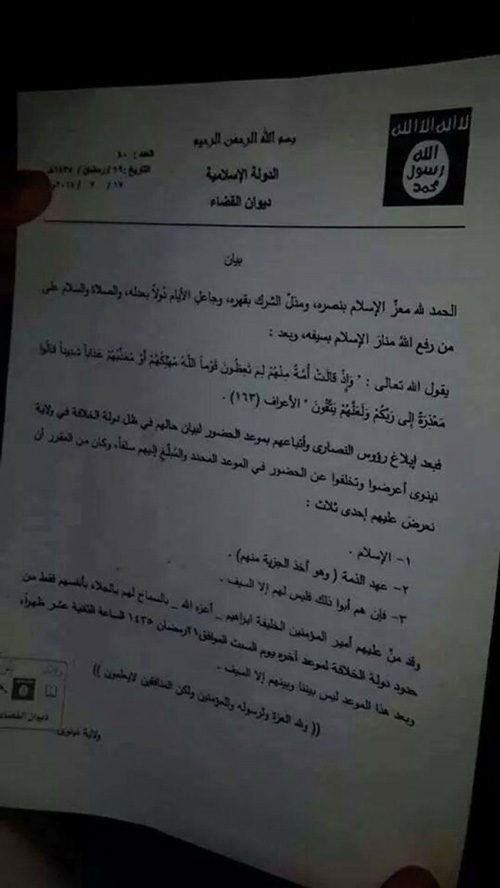 لا اله الا الله
الله
رسول
محمد
بسم الله الرحمن الرحيم
العدد : ٤٠
التاريخ : ١٩/ رمضان / ١٤٣٥هـ
١٧
الدولة الإسلامية
ديوان القضاء
بيان
الحمد لله معزّ الإسلام بنصره، ومذلّ الشرك بقهره، وجاعل الأيام دُولاً بعدله، والصلاة والسلام على
من رفع اللهُ منارَ الإسلام بسيفه، وبعد :
يقول الله تعالى : " وَإِذْ قَالَتْ أُمَّةٌ مِنْهُمْ لِمَ تَعِظُونَ قَوْماً اللَّهُ مُهْلِكُهُمْ أَوْ مُعَذِّبُهُمْ عَذَاباً شَدِيداً قَالُوا
مَعْذِرَةً إِلَى رَبِّكُمْ وَلَعَلَّهُمْ يَتَّقُونَ " الأعراف (١٦٣) .
فبعد إبلاغ رؤوس النصارى وأتباعهم بموعد الحضور لبيان حالهم في ظل دولة الخلافة في ولاية
نينوى أعرضوا وتخلفوا عن الحضور في الموعد المحدد والمُبلَّغ إليهم سلفاً، وكان من المقرر أن
نعرض عليهم إحدى ثلاث :
١- الإسلام .
٢- عهد الذمة ( وهو أخذ الجزية منهم) .
٣- فإن هم أبوا ذلك فليس لهم إلا السيف .
وقد منّ عليهم أمير المؤمنين الخليفة ابراهيم _ أعزه الله _ بالسماح لهم بالجلاء بأنفسهم فقط من
حدود دولة الخلافة لموعد آخره يوم السبت الموافق٢١رمضان ١٤٣٥ الساعة الثانية عشر ظهراً،
وبعد هذا الموعد ليس بيننا وبينهم إلا السيف .
(( ولله العزة ولرسوله وللمؤمنين ولكن المنافقين لايعلمون ))
ديوان القضاء
ولاية نينوى